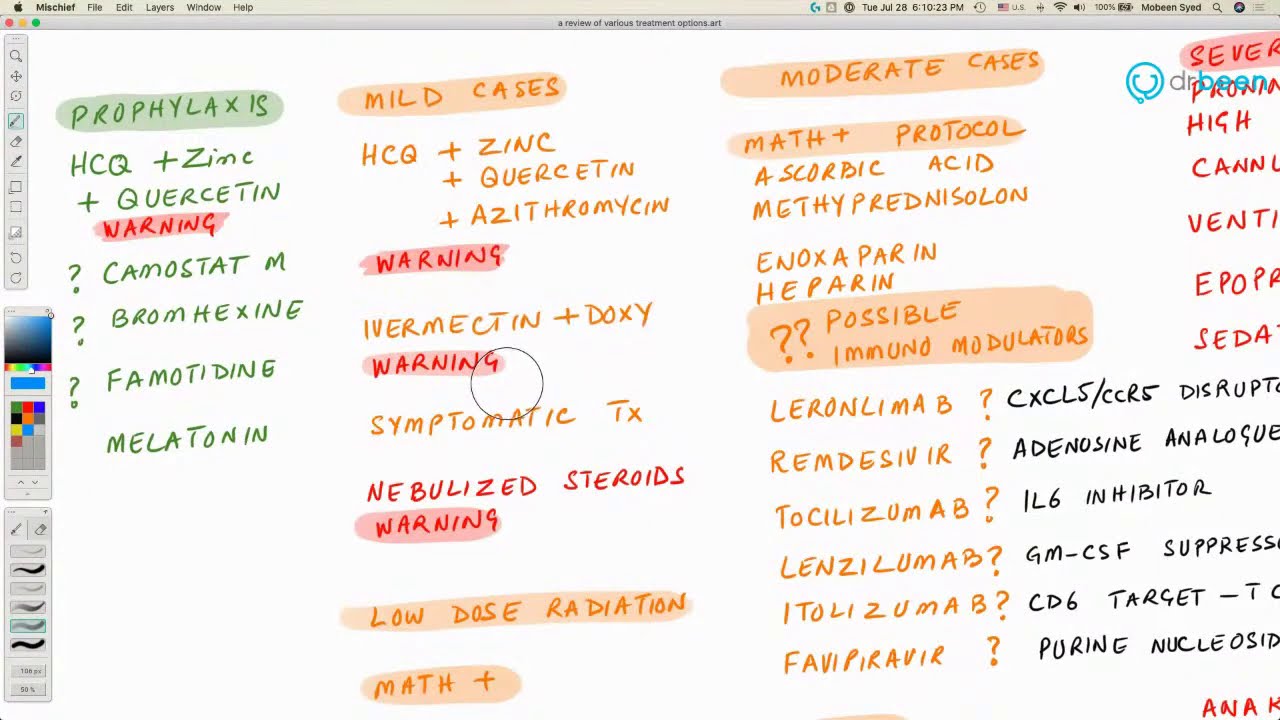 Mischief File Edit Layers Window Help
100% Tue Jul 28 6:10:23 PM U.S. 100% Mobeen Syed
a review of various treatment options.art
drbeen
PROPHYLAXIS
HCQ + Zinc
+ QUERCETIN
WARNING
? CAMOSTAT M
? BROMHEXINE
? FAMOTIDINE
MELATONIN
MILD CASES
HCQ + ZINC
+ QUERCETIN
+ AZITHROMYCIN
WARNING
IVERMECTIN + DOXY
WARNING
SYMPTOMATIC TX
NEBULIZED STEROIDS
WARNING
LOW DOSE RADIATION
MATH +
MODERATE CASES
MATH+ PROTOCOL
ASCORBIC ACID
METHYPREDNISOLON
ENOXAPARIN
HEPARIN
?? POSSIBLE
IMMUNO MODULATORS
LERONLIMAB ? CXCL5/CCR5 DISRUPTO
REMDESIVIR ? ADENOSINE ANALOGUE
TOCILIZUMAB ? IL6 INHIBITOR
LENZILUMAB? GM-CSF SUPPRESSO
ITOLIZUMAB? CD6 TARGET - T C
FAVIPIRAVIR ? PURINE NUCLEOSID
SEVER
PRONIN
HIGH
CANNU
VENTI
EPOPR
SEDAT
ANAK
106 px
50 %